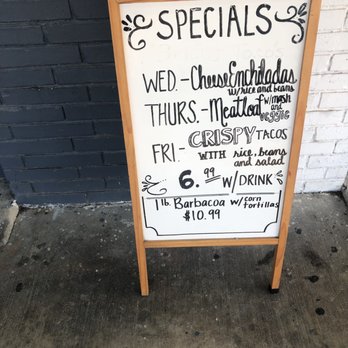 SPECIALS
WED.-Cheese Enchiladas
w/rice and beans
THURS.-Meatloaf w/mash
and
veggie
FRI.- CRISPY TACOS
WITH rice, beans
and salad
6.99 W/DRINK
1 lb. Barbacoa w/corn
tortillas
$10.99